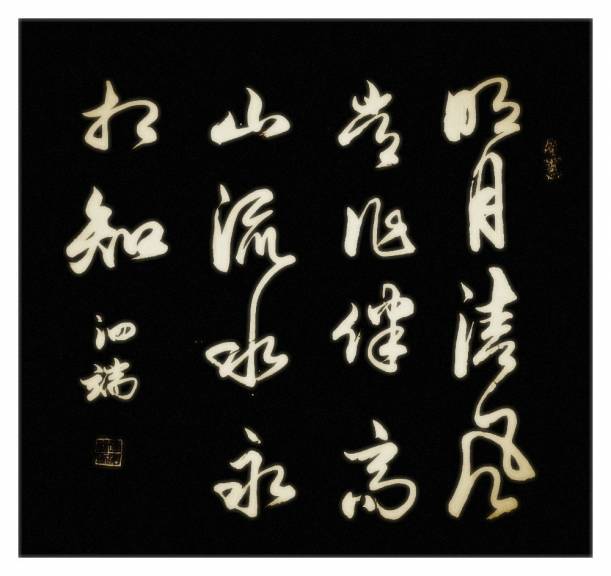 明月清风
常作伴高
山流水永
相知
泗端